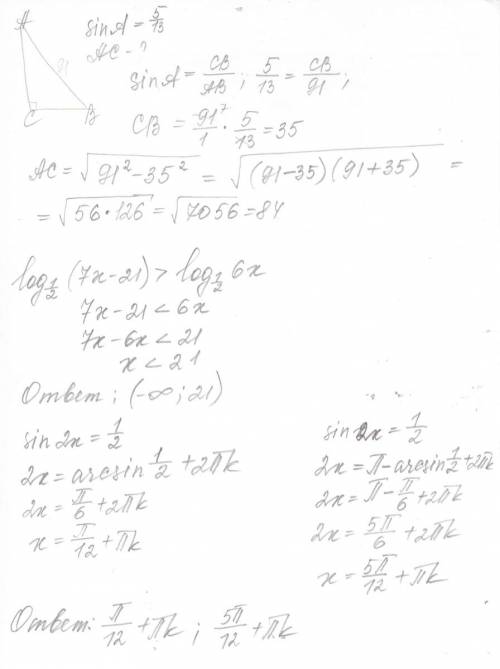 A
sin A = 5/13
AC - ?
91
C B
sin A = CB/AB ; 5/13 = CB/91 ;
CB = 91⁷/1 · 5/13 = 35
AC = √(91² - 35²) = √((91-35)(91+35)) =
= √(56·126) = √7056 = 84
log½ (7x-21) > log½ 6x
7x - 21 < 6x
7x - 6x < 21
x < 21
Ответ: (-∞; 21)
sin 2x = 1/2
2x = arcsin 1/2 + 2πk
2x = π/6 + 2πk
x = π/12 + πk
sin 2x = 1/2
2x = π - arcsin 1/2 + 2πk
2x = π - π/6 + 2πk
2x = 5π/6 + 2πk
x = 5π/12 + πk
Ответ: π/12 + πk ; 5π/12 + πk